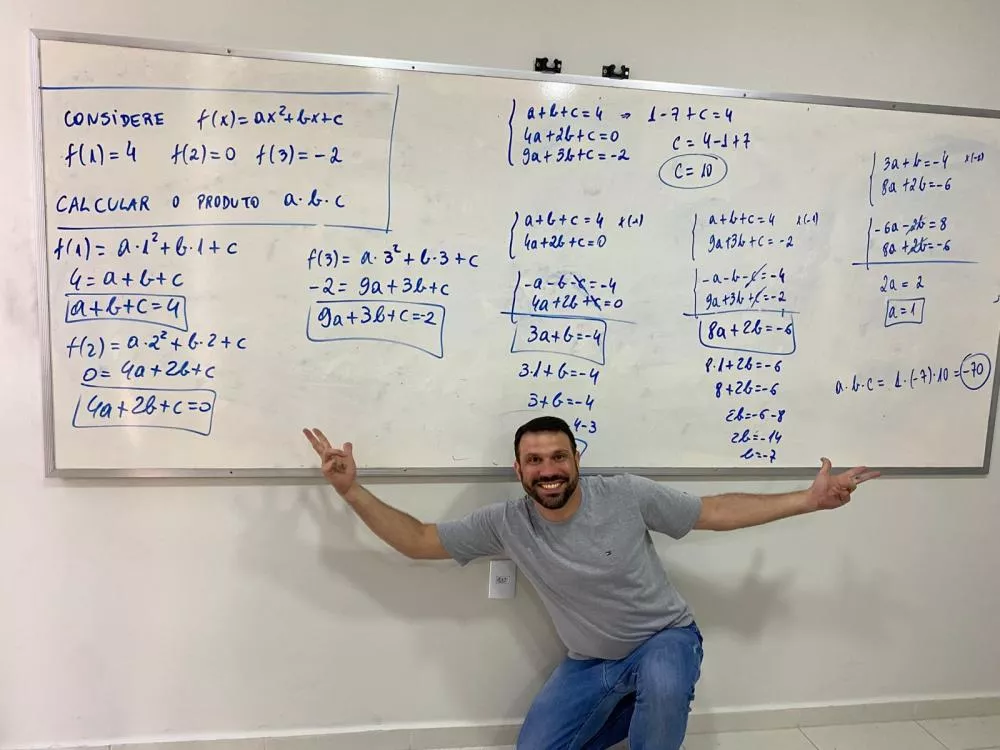 CONSIDERE f(x)=ax²+bx+c
f(1)=4 f(2)=0 f(3)=-2
CALCULAR O PRODUTO a·b·c
f(1)=a·1²+b·1+c
4=a+b+c
a+b+c=4
f(2)=a·2²+b·2+c
0=4a+2b+c
4a+2b+c=0
f(3)=a·3²+b·3+c
-2=9a+3b+c
9a+3b+c=-2
a+b+c=4 ⇒ 1-7+c=4
4a+2b+c=0 c=4-1+7
9a+3b+c=-2 c=10
a+b+c=4 x(-1)
4a+2b+c=0
-a-b-c=-4
4a+2b+c=0
3a+b=-4
3·1+b=-4
3+b=-4
4-3
a+b+c=4 x(-1)
9a+3b+c=-2
-a-b-c=-4
9a+3b+c=-2
8a+2b=-6
8·1+2b=-6
8+2b=-6
2b=-6-8
2b=-14
b=-7
3a+b=-4 x(-2)
8a+2b=-6
-6a-2b=8
8a+2b=-6
2a=2
a=1
a·b·c=1·(-7)·10=-70